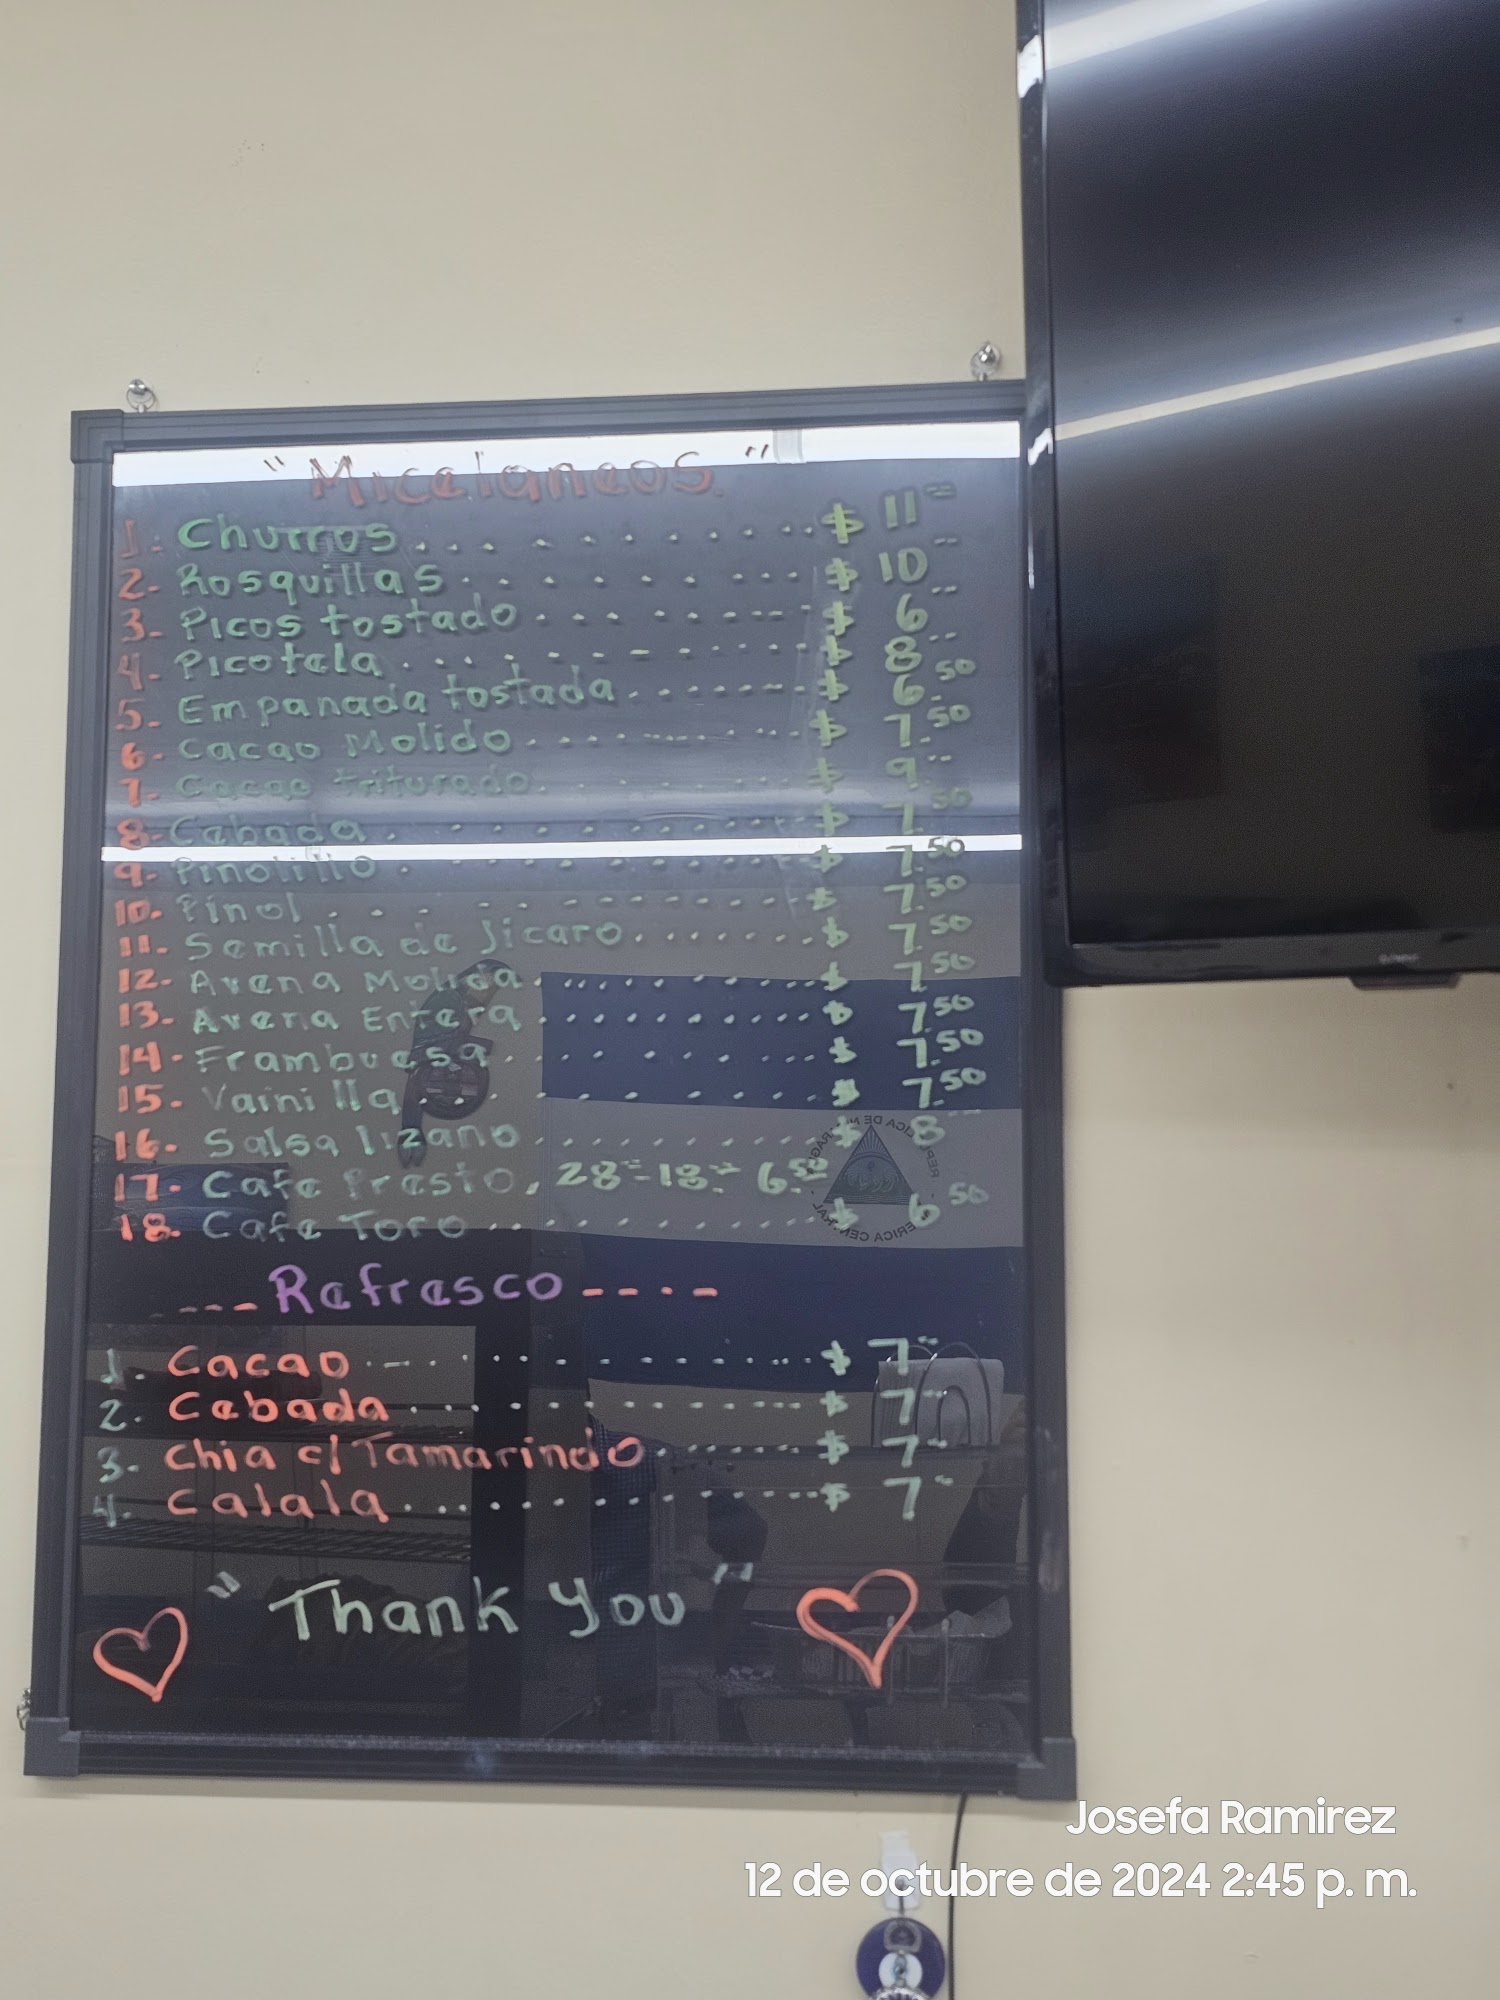 "Micelaneos."
1. Churros $ 11
2- Rosquillas $ 10
3- Picos tostado $ 6
4- Picotela $ 8
5- Empanada tostada $ 6.50
6- Cacao Molido $ 7.50
7- Cacao triturado $ 9
8- Cebada $ 7.50
9- Pinolillo $ 7.50
10- Pinol $ 7.50
11- Semilla de Jicaro $ 7.50
12- Avena Molida $ 7.50
13- Avena Entera $ 7.50
14- Frambuesa $ 7.50
15- Vainilla $ 7.50
16- Salsa lizano $ 8
17- Cafe Presto, 28-18- 6.50
18. Cafe Toro $ 6.50
----Refresco----
1. Cacao $ 7
2. Cebada $ 7
3- Chia c/Tamarindo $ 7
4. Calala $ 7
"Thank You"
Josefa Ramirez
12 de octubre de 2024 2:45 p. m.